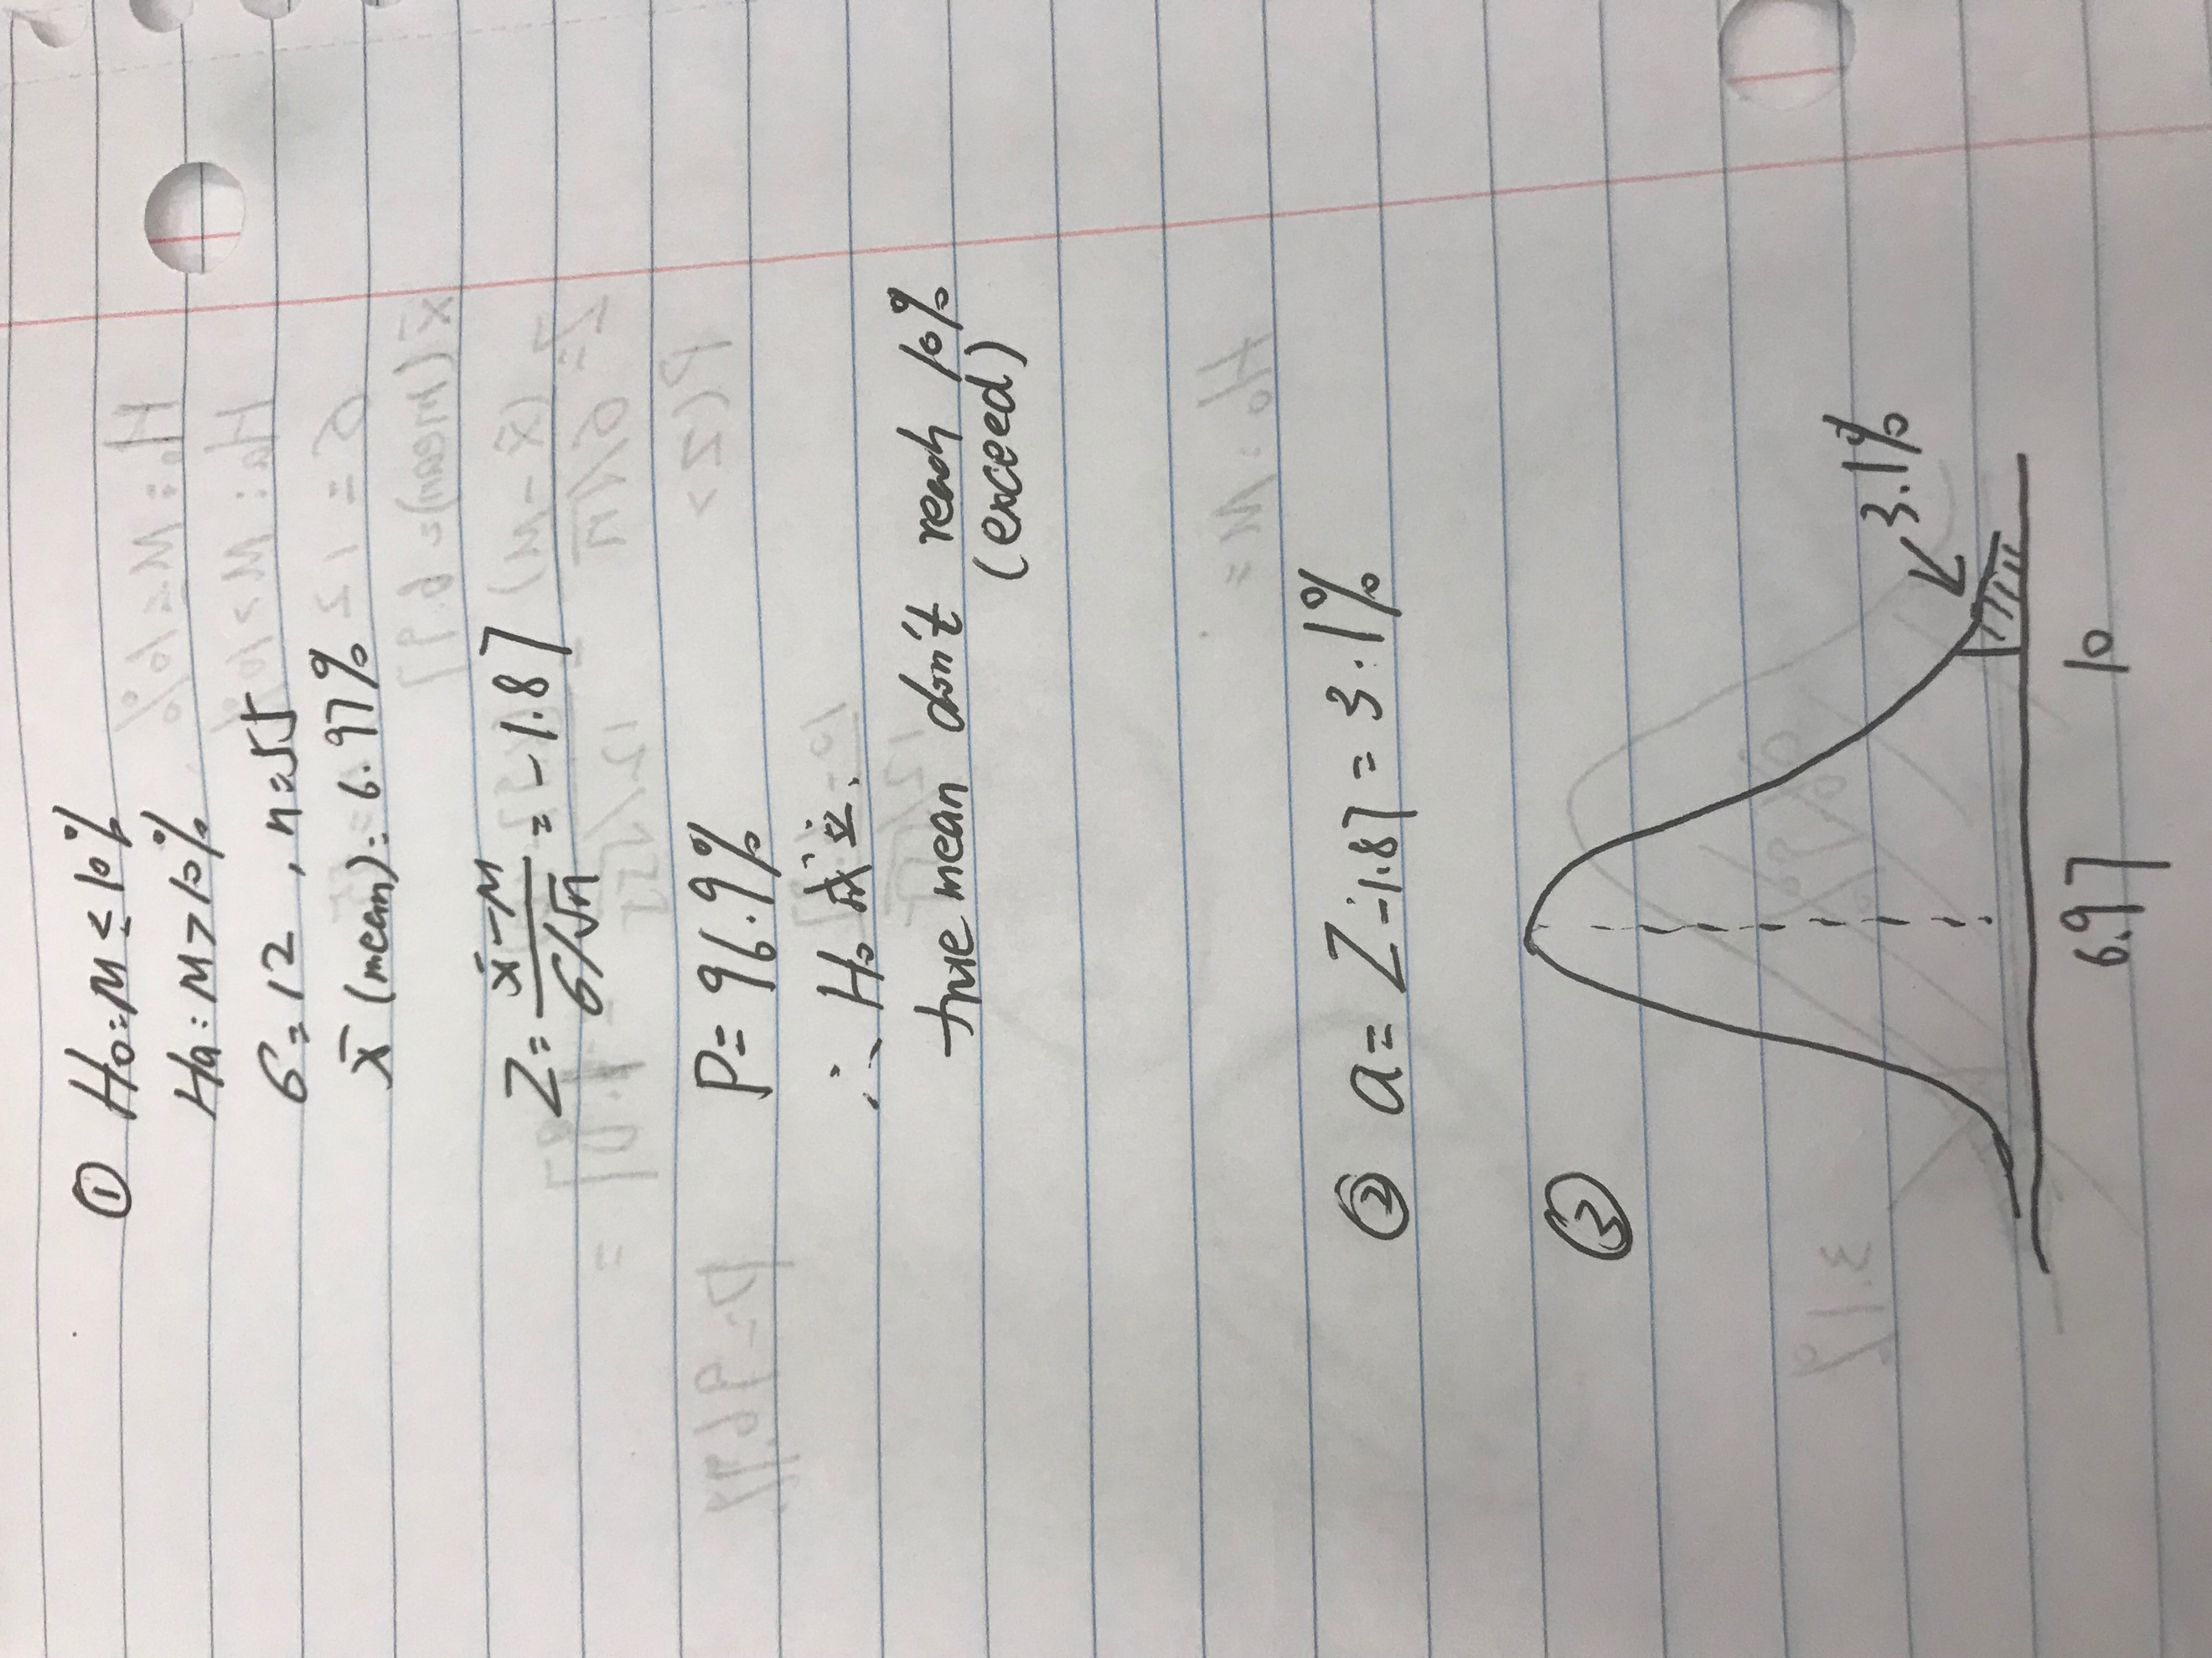 ① H₀: μ ≤ 10%
Ha: μ > 10%
σ = 12, n = 55
x̄ (mean): 6.97%
Z = (x̄ - μ) / (σ/√n) = -1.87
P = 96.9%
∴ H₀ 成立.
true mean don't reach 10%
(exceed)
② a = Z₋₁.₈₇ = 3.1%
③
3.1%
6.97 10